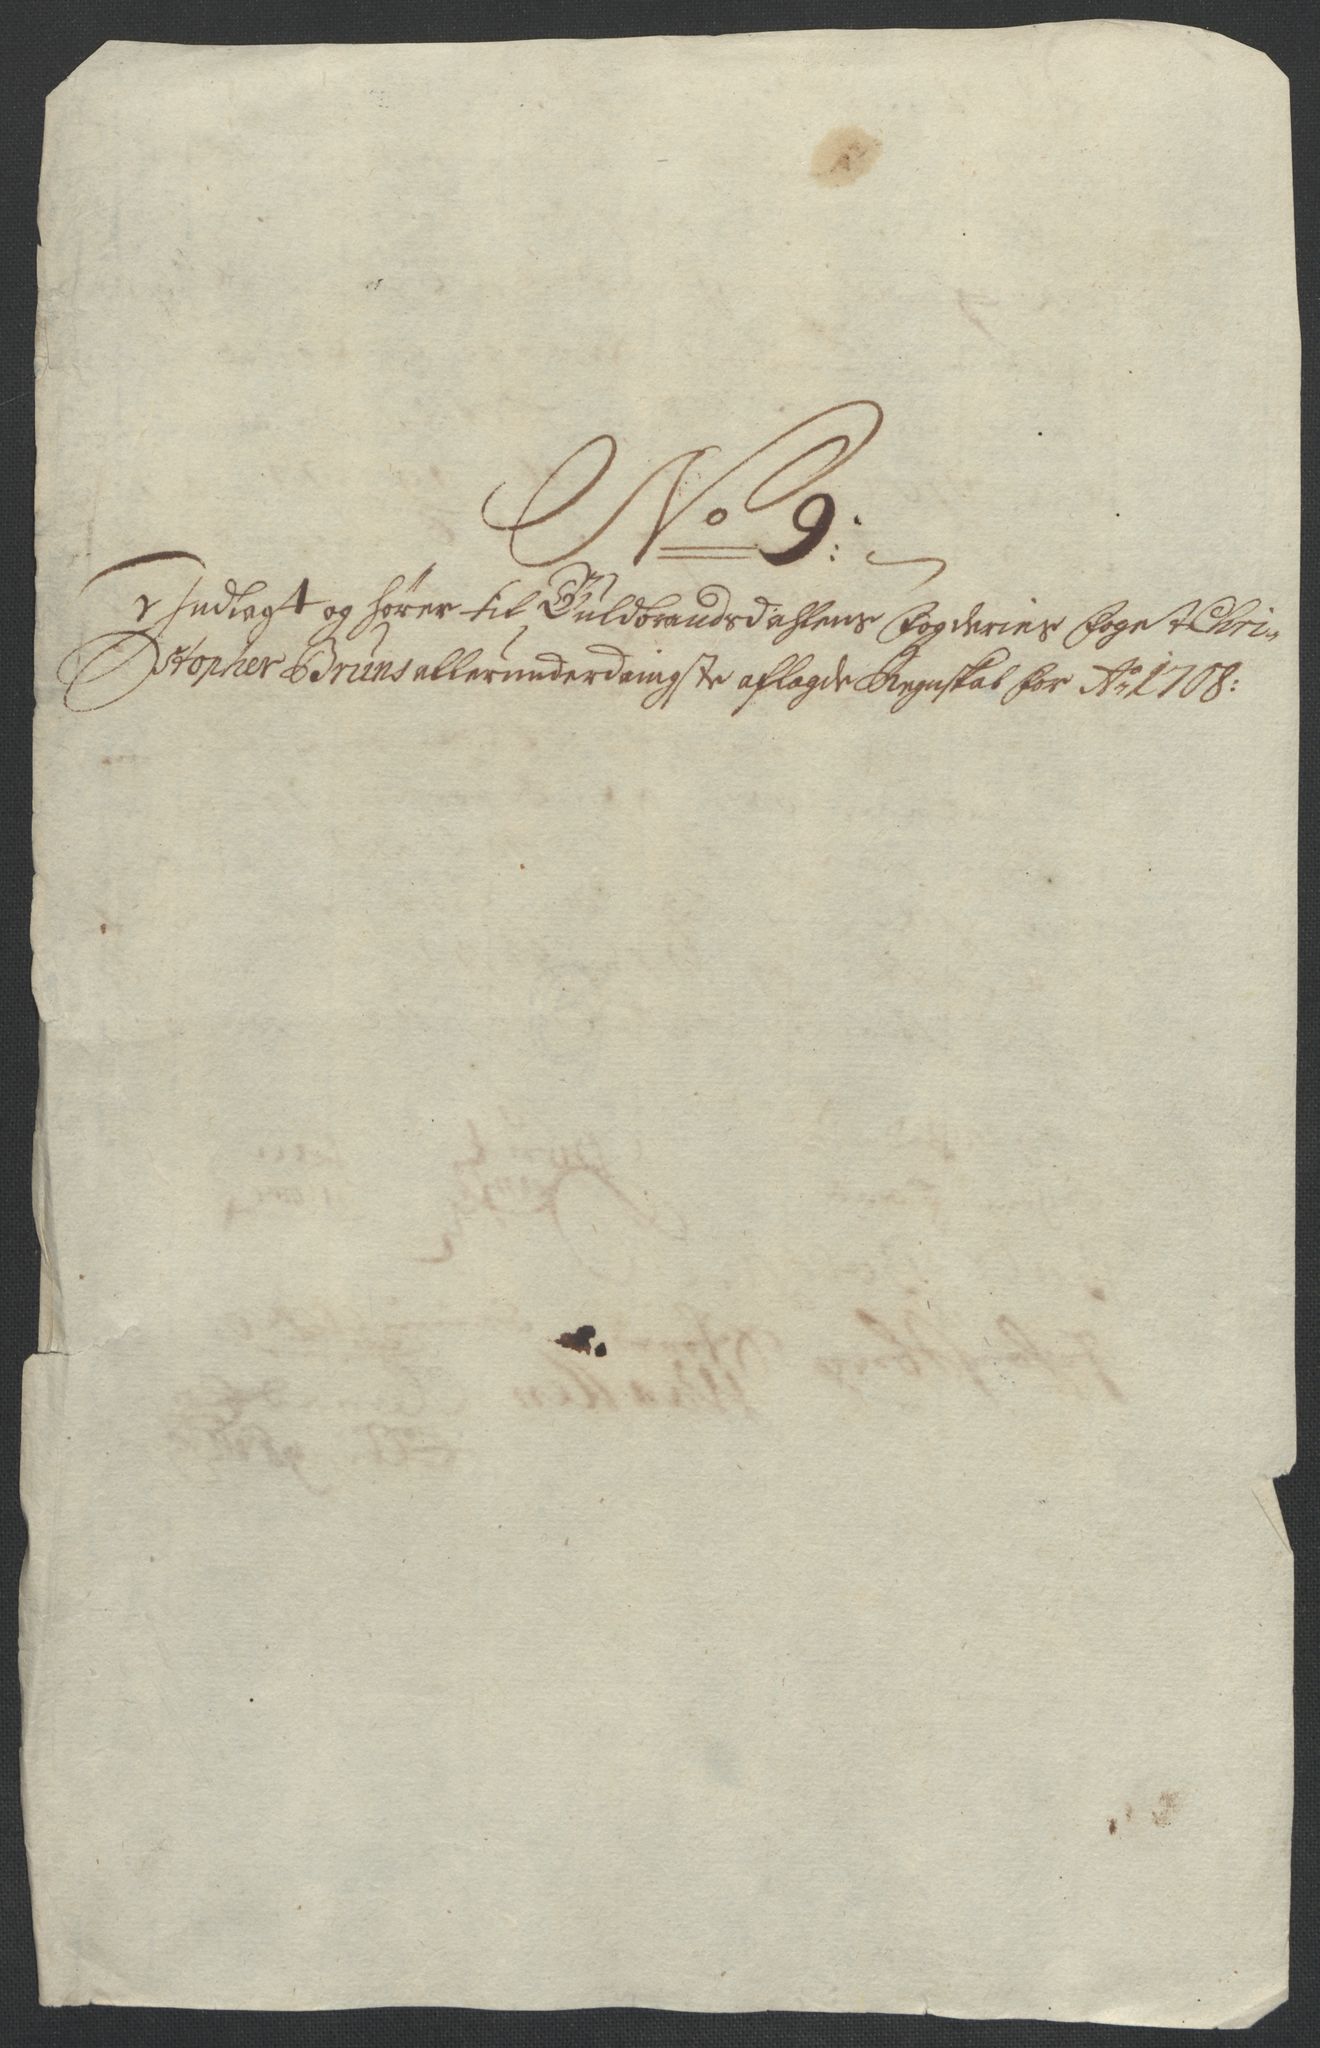 No 9:
Er Indlagt og hører til Guldbrandsdahlens fogderies foget Chri-
stopher Bruns allerunderdanigste aflagde Regnskab for Ao 1708: